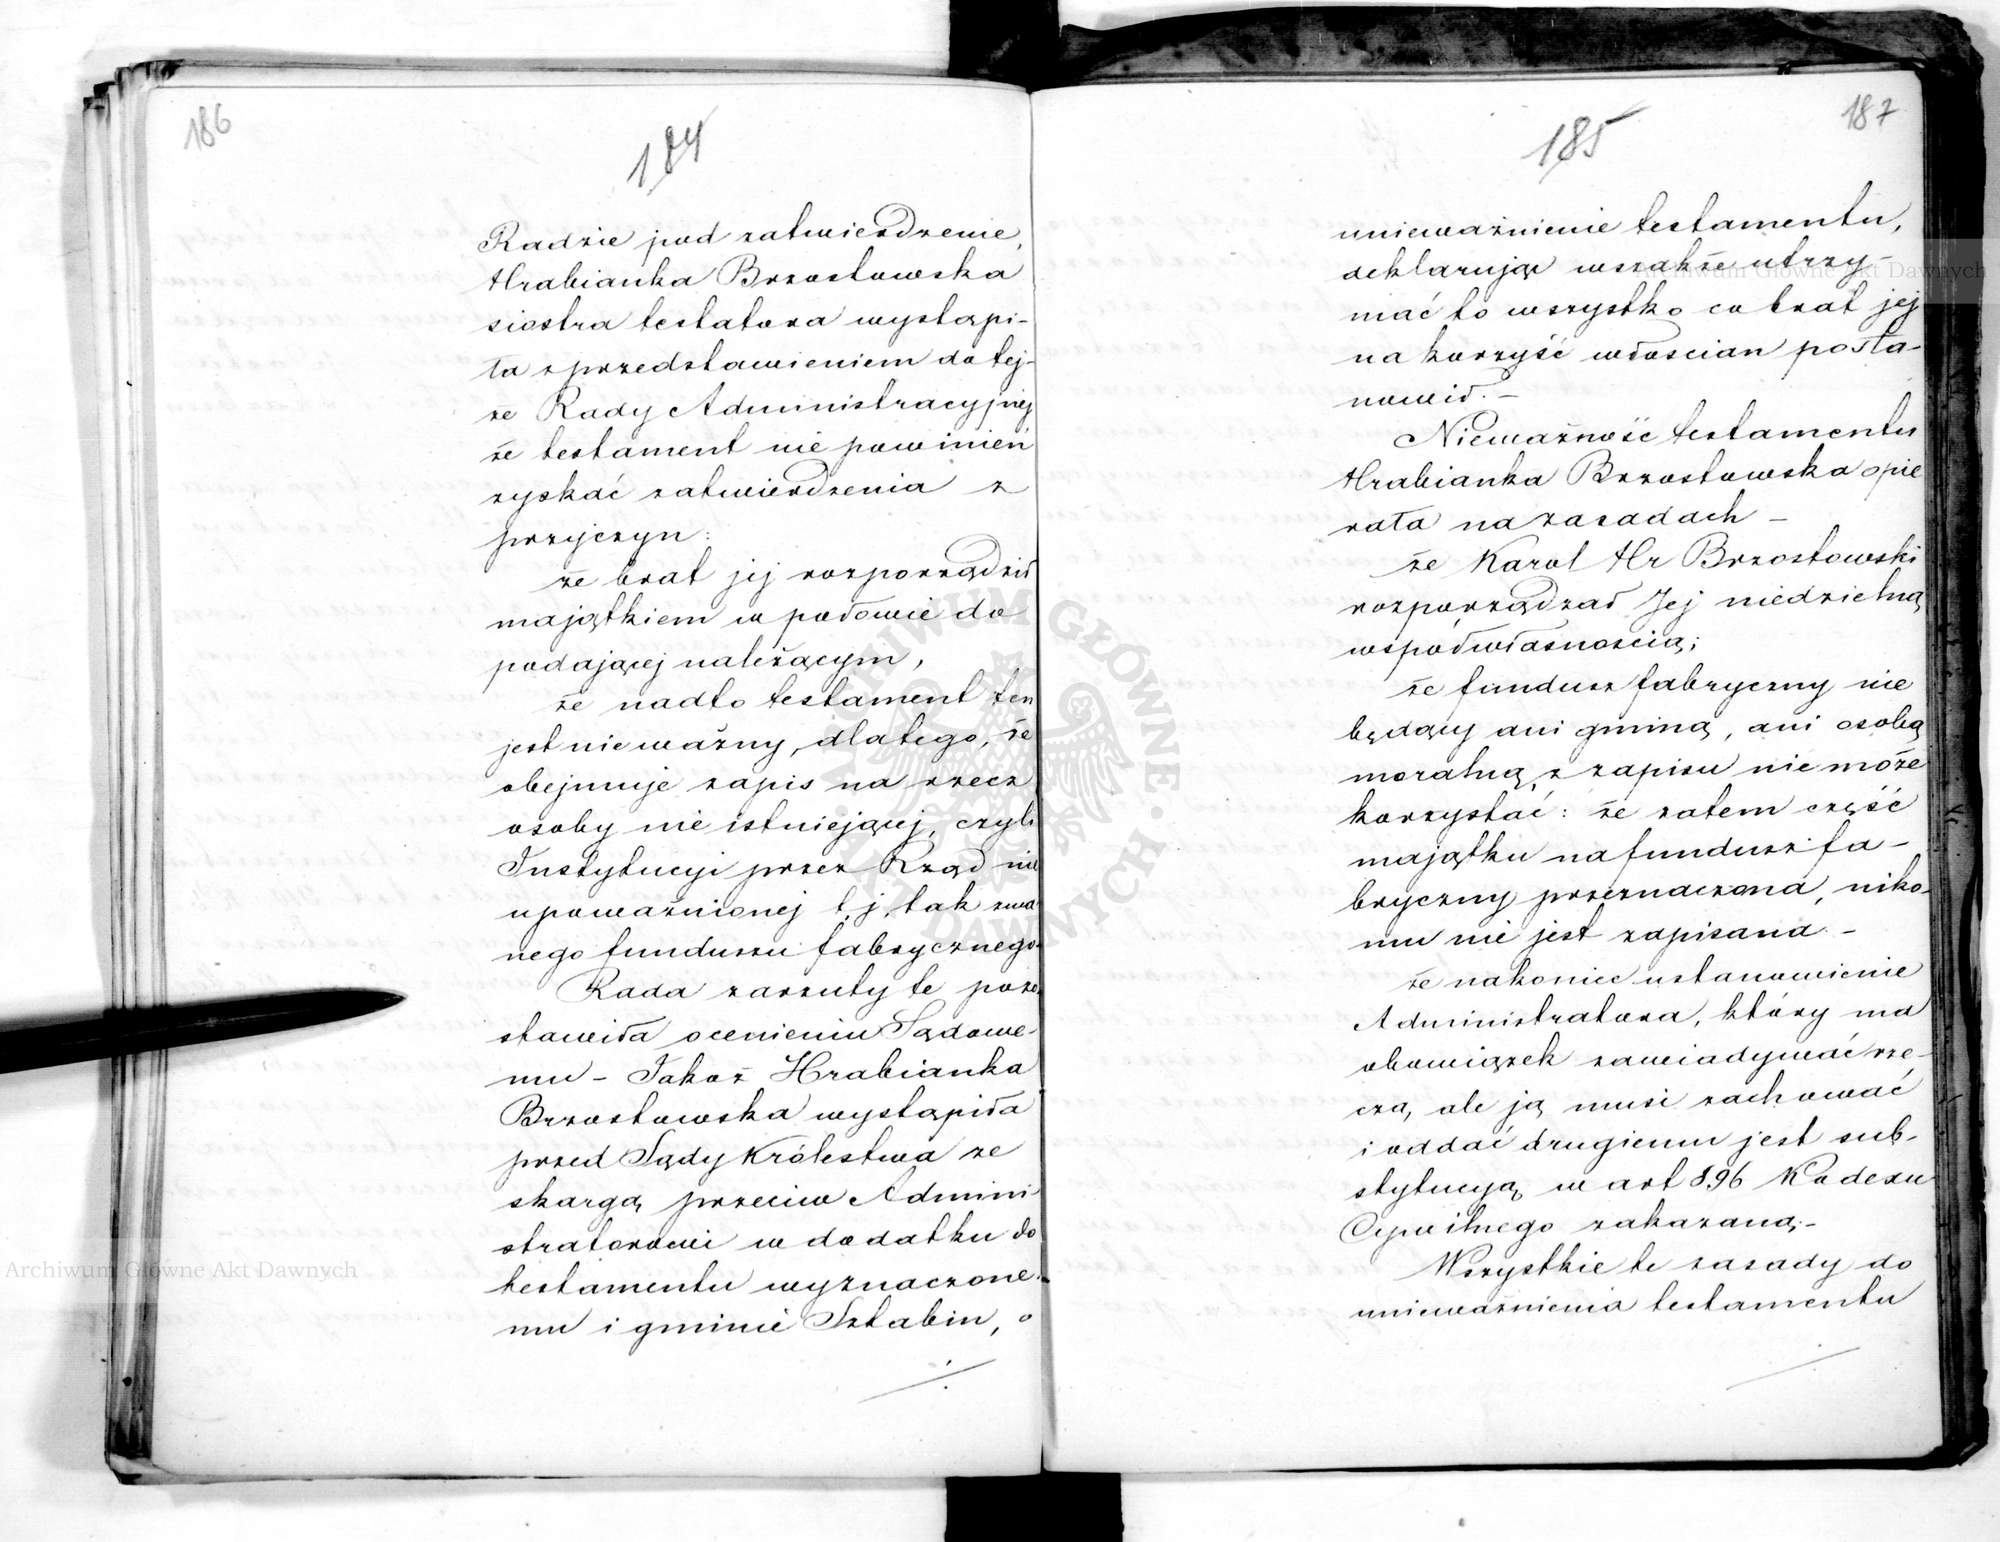 186
184
Radzie pod zatwierdzenie,
Hrabianka Brzostowska
siostra testatora wystąpi-
ła z przedstawieniem do tej-
że Rady Administracyjnej
że testament nie powinien
zyskać zatwierdzenia z
przyczyn:
że brat jej rozporządził
majątkiem w połowie do
podającej należącym,
że nadto testament ten
jest nieważny, dlatego, że
obejmuje zapis na rzecz
osoby nie istniejącej, czyli
Instytucyi przez Rząd nie
upoważnionej t. j. tak zwa-
nego funduszu fabrycznego.
Rada zarzuty te pozo-
stawiła ocenieniu Sądowe-
mu - Jakoż Hrabianka
Brzostowska wystąpiła
przed Sądy Królestwa ze
skargą przeciw Admini-
stratorowi w dodatku do
testamentu wyznaczone-
mu i gminie Sztabin, o
187
185
unieważnienie testamentu,
deklarując wszakże utrzy-
mać to wszystko co brat jej
na korzyść włościan posta-
nowił. -
Nieważność testamentu
Hrabianka Brzostowska opie
rała na zasadach -
że Karol Hr Brzostowski
rozporządzał Jej niedzielną
współwłasnością;
że fundusz fabryczny nie
będący ani gminą, ani osobą
moralną, z zapisu nie może
korzystać: że zatem część
majątku na fundusz fa-
bryczny przeznaczona, niko-
mu nie jest zapisana. -
że nakoniec ustanowienie
Administratora, który ma
obowiązek zawiadywać rze-
czą, ale ją musi zachować
i oddać drugiemu jest sub-
stytucyą w art 896 Kodexu
Cywilnego zakazaną. -
Wszystkie te zasady do
unieważnienia testamentu
ARCHIWUM GŁÓWNE AKT DAWNYCH
Archiwum Główne Akt Dawnych
Archiwum Główne Akt Dawnych